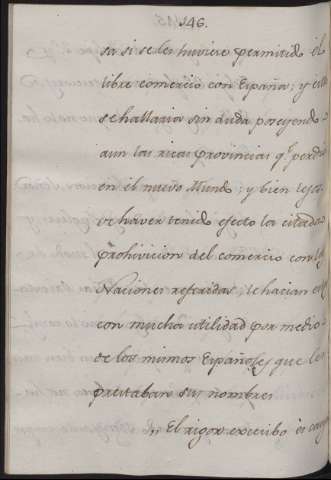 146.
sa si se les huviere permitido el
libre comercio con España; y esta
se hallaria sin duda poseyendo
aun las ricas provincias q.e perdio
en el nuevo Mundo; y bien lejos
de haver tenido efecto la citada
prohivicion del comercio con las
Naciones referidas, le hacian
con mucha utilidad por medio
de los mismos Españoles que les
prestaban sus nombres
,, El rigor excesibo es